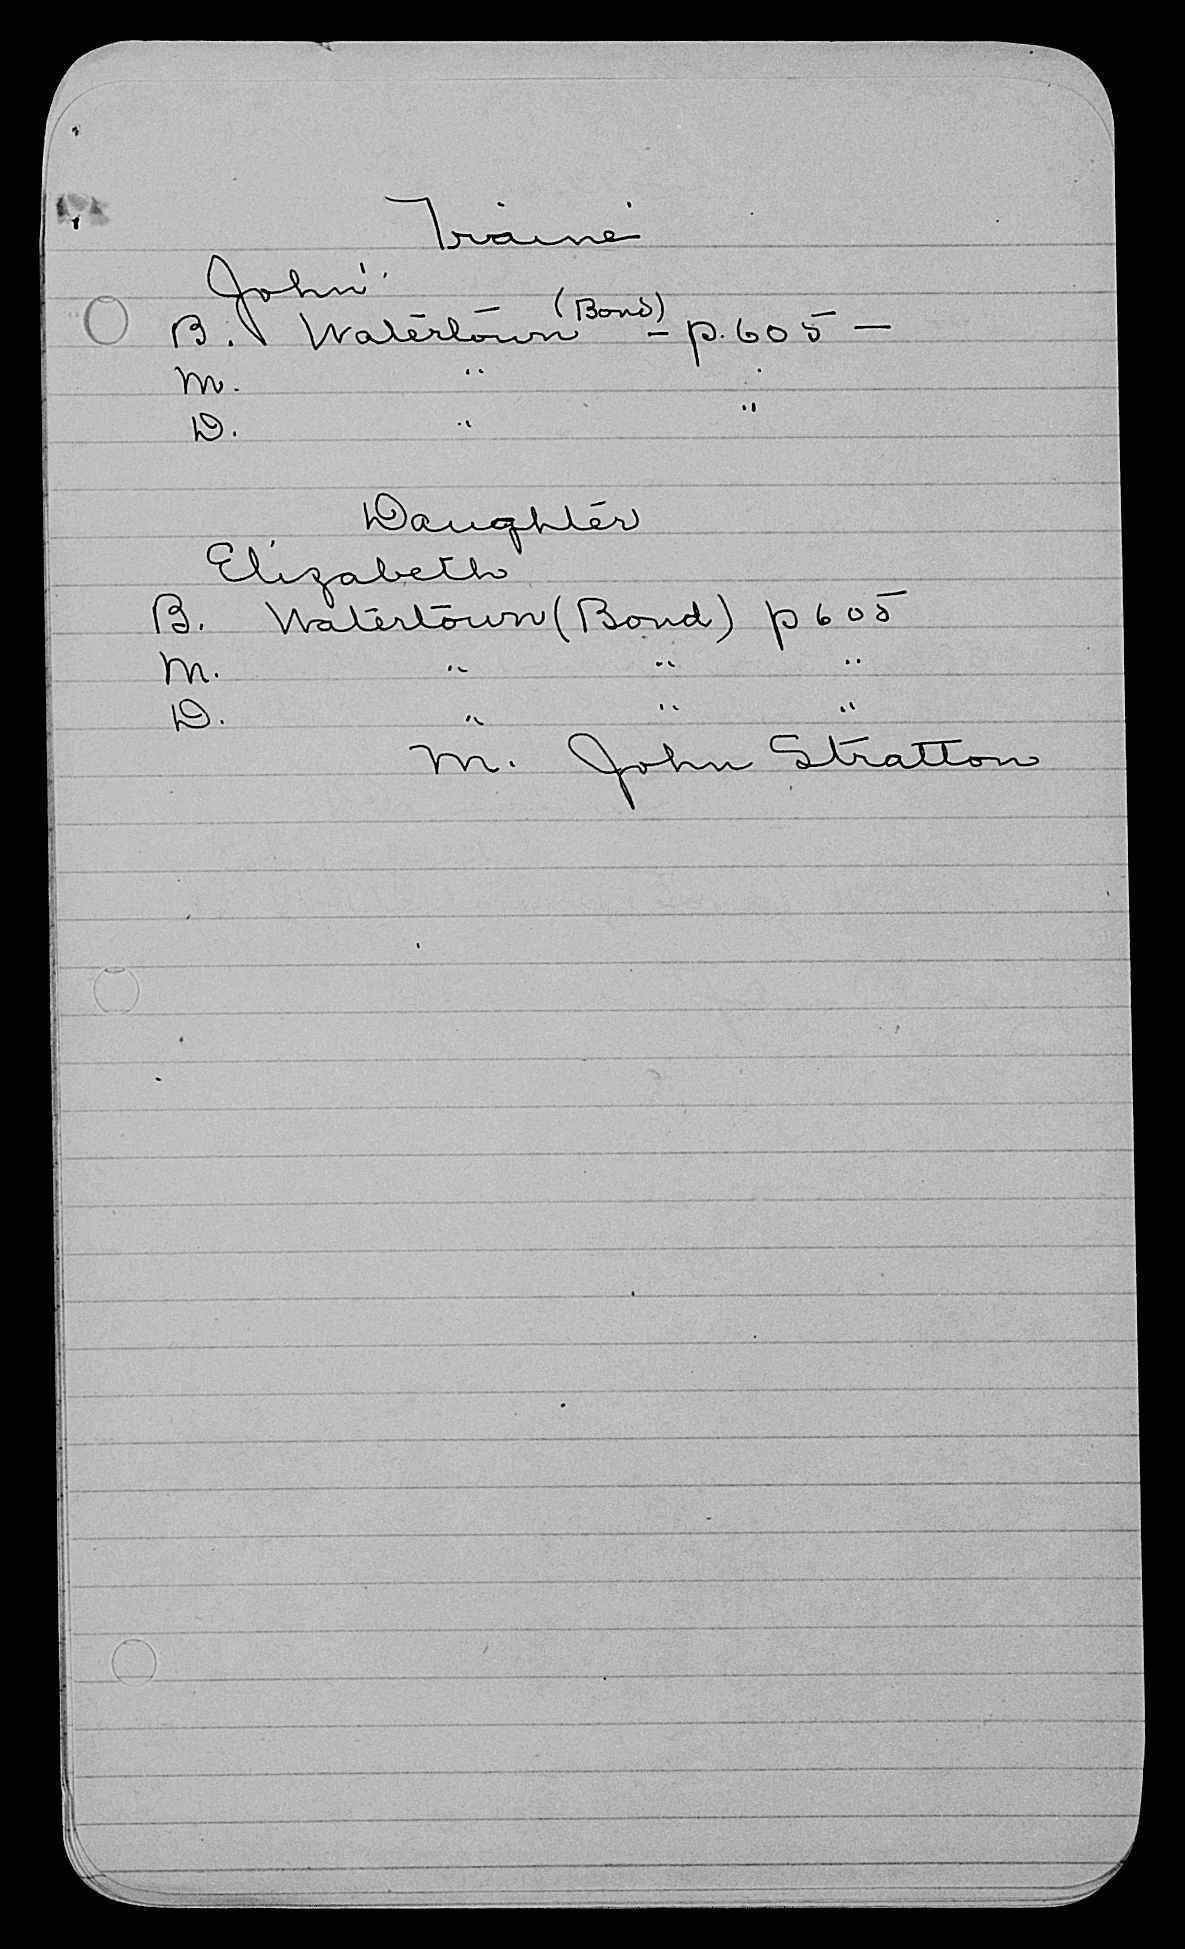 Traine
John
B. Watertown (Bond) - p. 605 -
M. " "
D. " "
Daughter
Elizabeth
B. Watertown (Bond) p 605
M. " " "
D. " " "
M. John Stratton